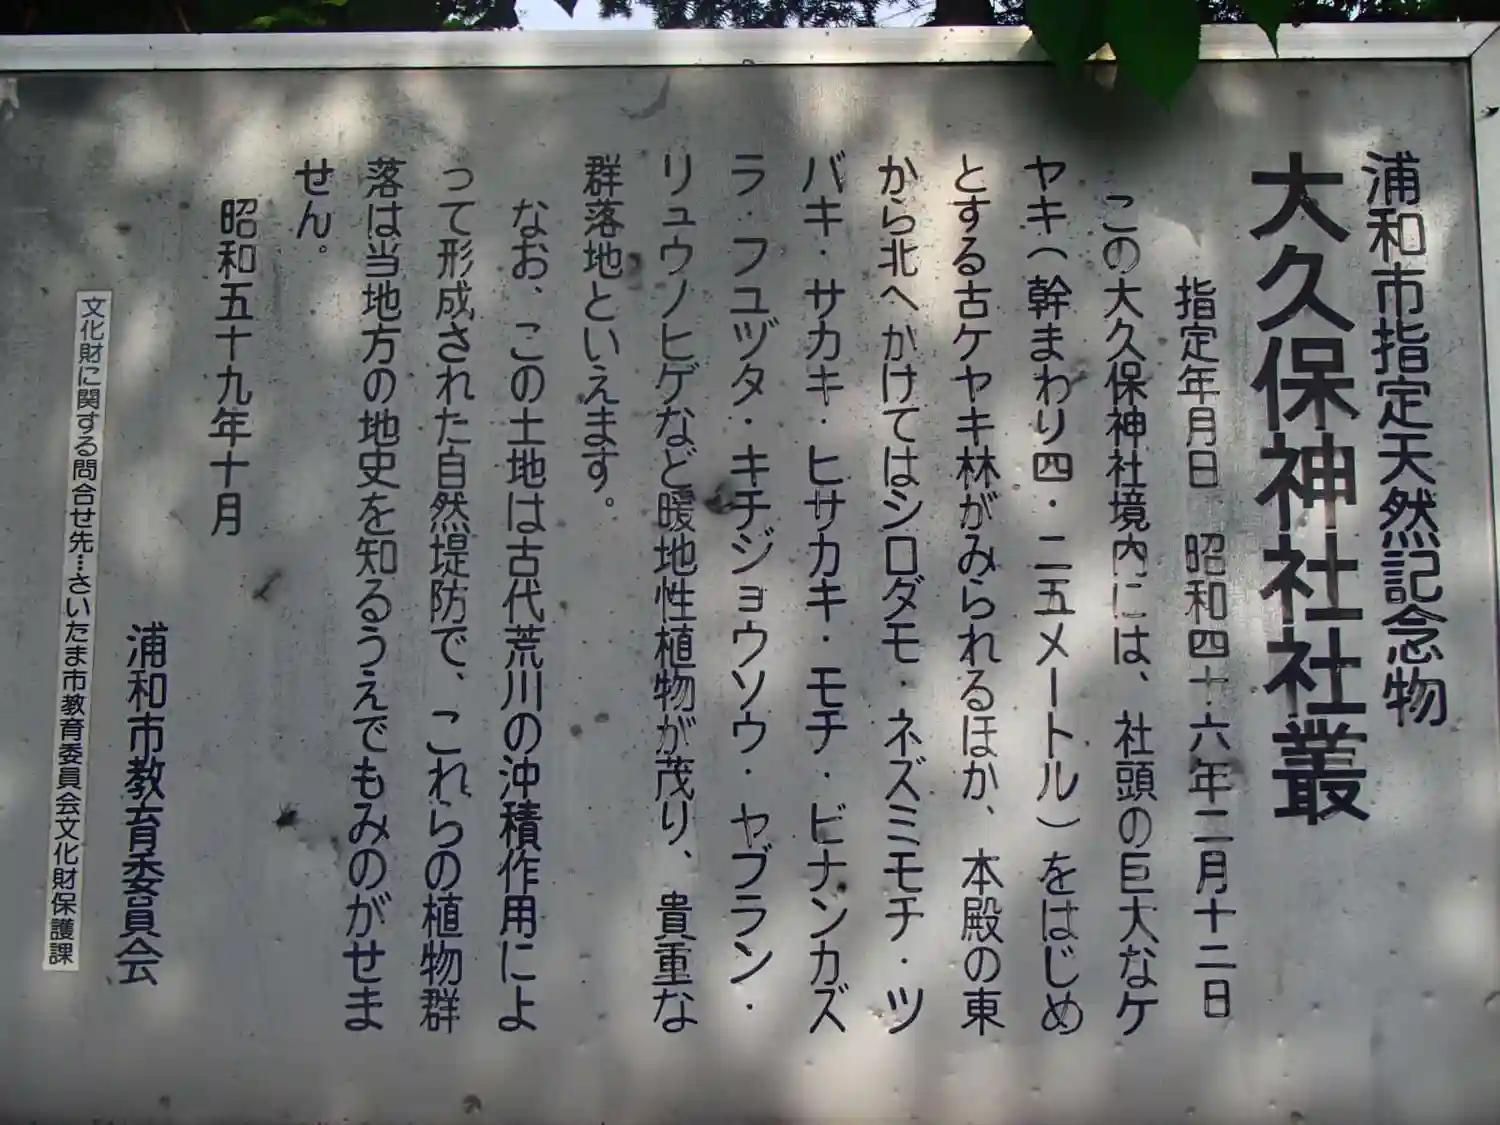 浦和市指定天然記念物
大久保神社社叢
指定年月日　昭和四十六年二月十二日
この大久保神社境内には、社頭の巨大なケ
ヤキ（幹まわり四・二五メートル）をはじめ
とする古ケヤキ林がみられるほか、本殿の東
から北へかけてはシロダモ・ネズミモチ・ツ
バキ・サカキ・ヒサカキ・モチ・ビナンカズ
ラ・フユヅタ・キチジョウソウ・ヤブラン・
リュウノヒゲなど暖地性植物が茂り、貴重な
群落地といえます。
なお、この土地は古代荒川の沖積作用によ
って形成された自然堤防で、これらの植物群
落は当地方の地史を知るうえでもみのがせま
せん。
昭和五十九年十月
浦和市教育委員会
文化財に関する問合せ先…さいたま市教育委員会文化財保護課